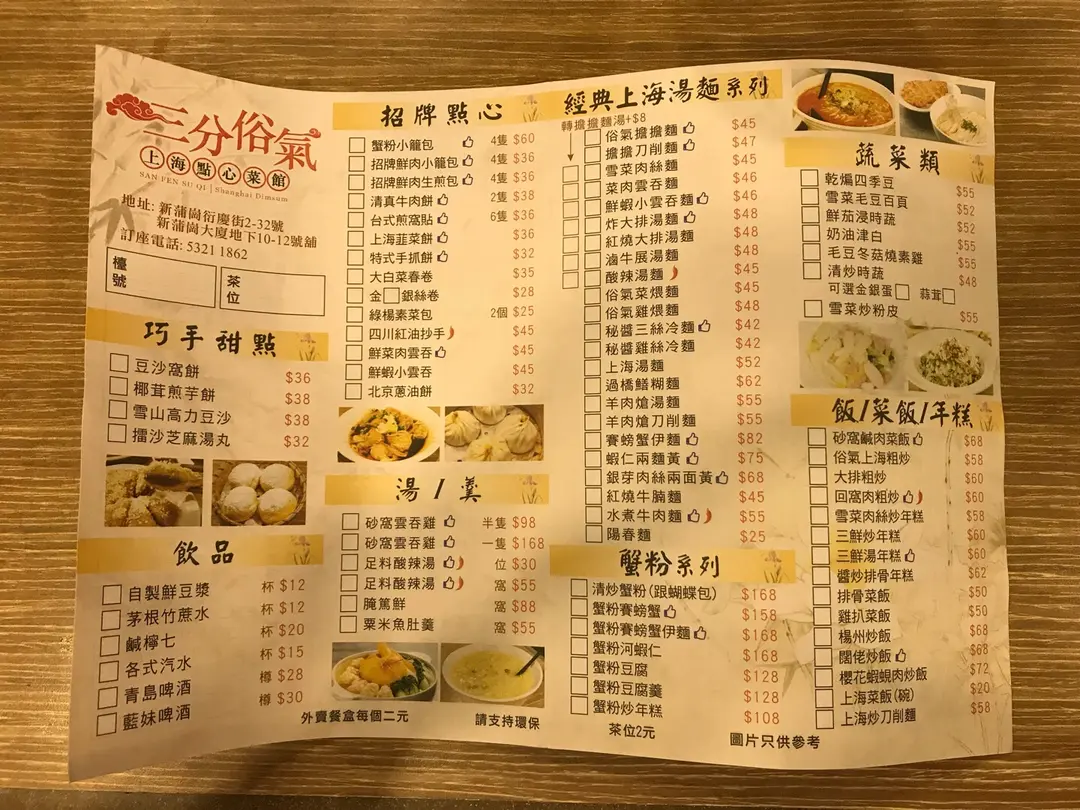 三分俗氣
上海點心菜館
SAN FEN SU QI | Shanghai Dimsum
地址: 新蒲崗衍慶街2-32號
新蒲崗大廈地下10-12號舖
訂座電話: 5321 1862
檯號
茶位
巧手甜點
豆沙窩餅 $36
椰茸煎芋餅 $38
雪山高力豆沙 $38
擂沙芝麻湯丸 $32
飲品
自製鮮豆漿 杯 $12
茅根竹蔗水 杯 $12
鹹檸七 杯 $20
各式汽水 杯 $15
青島啤酒 樽 $28
藍妹啤酒 樽 $30
招牌點心
蟹粉小籠包 4隻 $60
招牌鮮肉小籠包 4隻 $36
招牌鮮肉生煎包 4隻 $36
清真牛肉餅 2隻 $38
台式煎窩貼 6隻 $36
上海韮菜餅 $36
特式手抓餅 $32
大白菜春卷 $35
金銀絲卷 $28
綠楊素菜包 2個 $25
四川紅油抄手 $45
鮮菜肉雲吞 $45
鮮蝦小雲吞 $45
北京蔥油餅 $32
湯/羹
砂窩雲吞雞 半隻 $98
砂窩雲吞雞 一隻 $168
足料酸辣湯 位 $30
足料酸辣湯 窩 $55
腌篤鮮 窩 $88
粟米魚肚羹 窩 $55
外賣餐盒每個二元
請支持環保
經典上海湯麵系列
轉擔擔麵湯+$8
俗氣擔擔麵 $45
擔擔刀削麵 $47
雪菜肉絲麵 $45
菜肉雲吞麵 $45
鮮蝦小雲吞麵 $46
炸大排湯麵 $48
紅燒大排湯麵 $48
滷牛展湯麵 $48
酸辣湯麵 $45
俗氣菜煨麵 $45
俗氣雞煨麵 $48
秘醬三絲冷麵 $42
秘醬雞絲冷麵 $42
上海湯麵 $52
過橋鱔糊麵 $62
羊肉熗湯麵 $55
羊肉熗刀削麵 $55
賽螃蟹伊麵 $82
蝦仁兩麵黃 $75
銀芽肉絲兩面黃 $68
紅燒牛腩麵 $45
水煮牛肉麵 $55
陽春麵 $25
蟹粉系列
清炒蟹粉(跟蝴蝶包) $168
蟹粉賽螃蟹 $158
蟹粉賽螃蟹伊麵 $168
蟹粉河蝦仁 $168
蟹粉豆腐 $128
蟹粉豆腐羹 $128
蟹粉炒年糕 $108
茶位2元
蔬菜類
乾煸四季豆 $55
雪菜毛豆百頁 $52
鮮茄浸時蔬 $52
奶油津白 $55
毛豆冬菇燒素雞 $55
清炒時蔬 $48
可選金銀蛋 蒜茸
雪菜炒粉皮 $55
飯/菜飯/年糕
砂窩鹹肉菜飯 $68
俗氣上海粗炒 $58
大排粗炒 $60
回窩肉粗炒 $60
雪菜肉絲炒年糕 $58
三鮮炒年糕 $60
三鮮湯年糕 $60
醬炒排骨年糕 $62
排骨菜飯 $50
雞扒菜飯 $50
楊州炒飯 $68
闊佬炒飯 $68
櫻花蝦蜆肉炒飯 $72
上海菜飯(碗) $20
上海炒刀削麵 $58
圖片只供參考